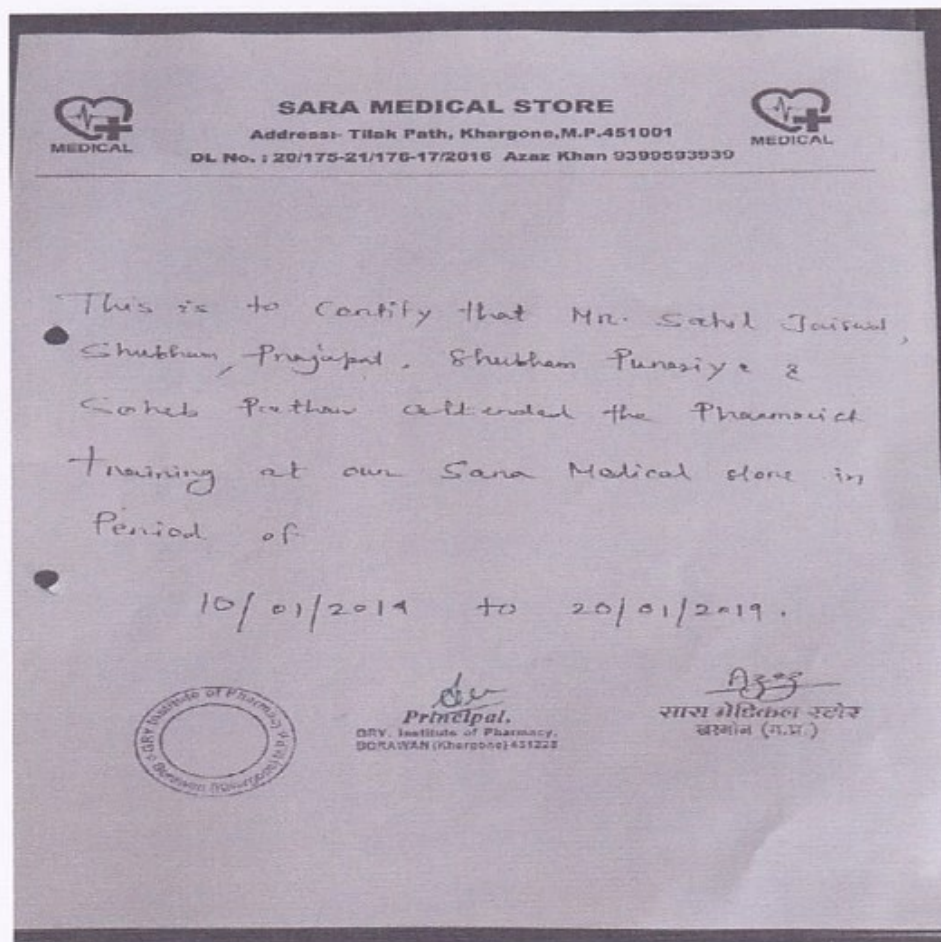 SARA MEDICAL STORE
MEDICAL
Address:- Tilak Path, Khargone,M.P.451001
MEDICAL
DL No. : 20/175-21/176-17/2016 Azaz Khan 9399593939
This is to Centify that Mr. Sahil Jaiswal,
Shubham, Prajapat, Shubham Punasiya &
Saheb Pathan attended the Pharmacist
Training at our Sara Medical store in
Period of
10/01/2019 to 20/01/2019.
GRY Institute of Pharmacy
Borawan (Khargone)
Principal,
GRY. Institute of Pharmacy,
BORAWAN (Khargone) 451228
Azaz
सारा मेडिकल स्टोर
खरगोन (म.प्र.)